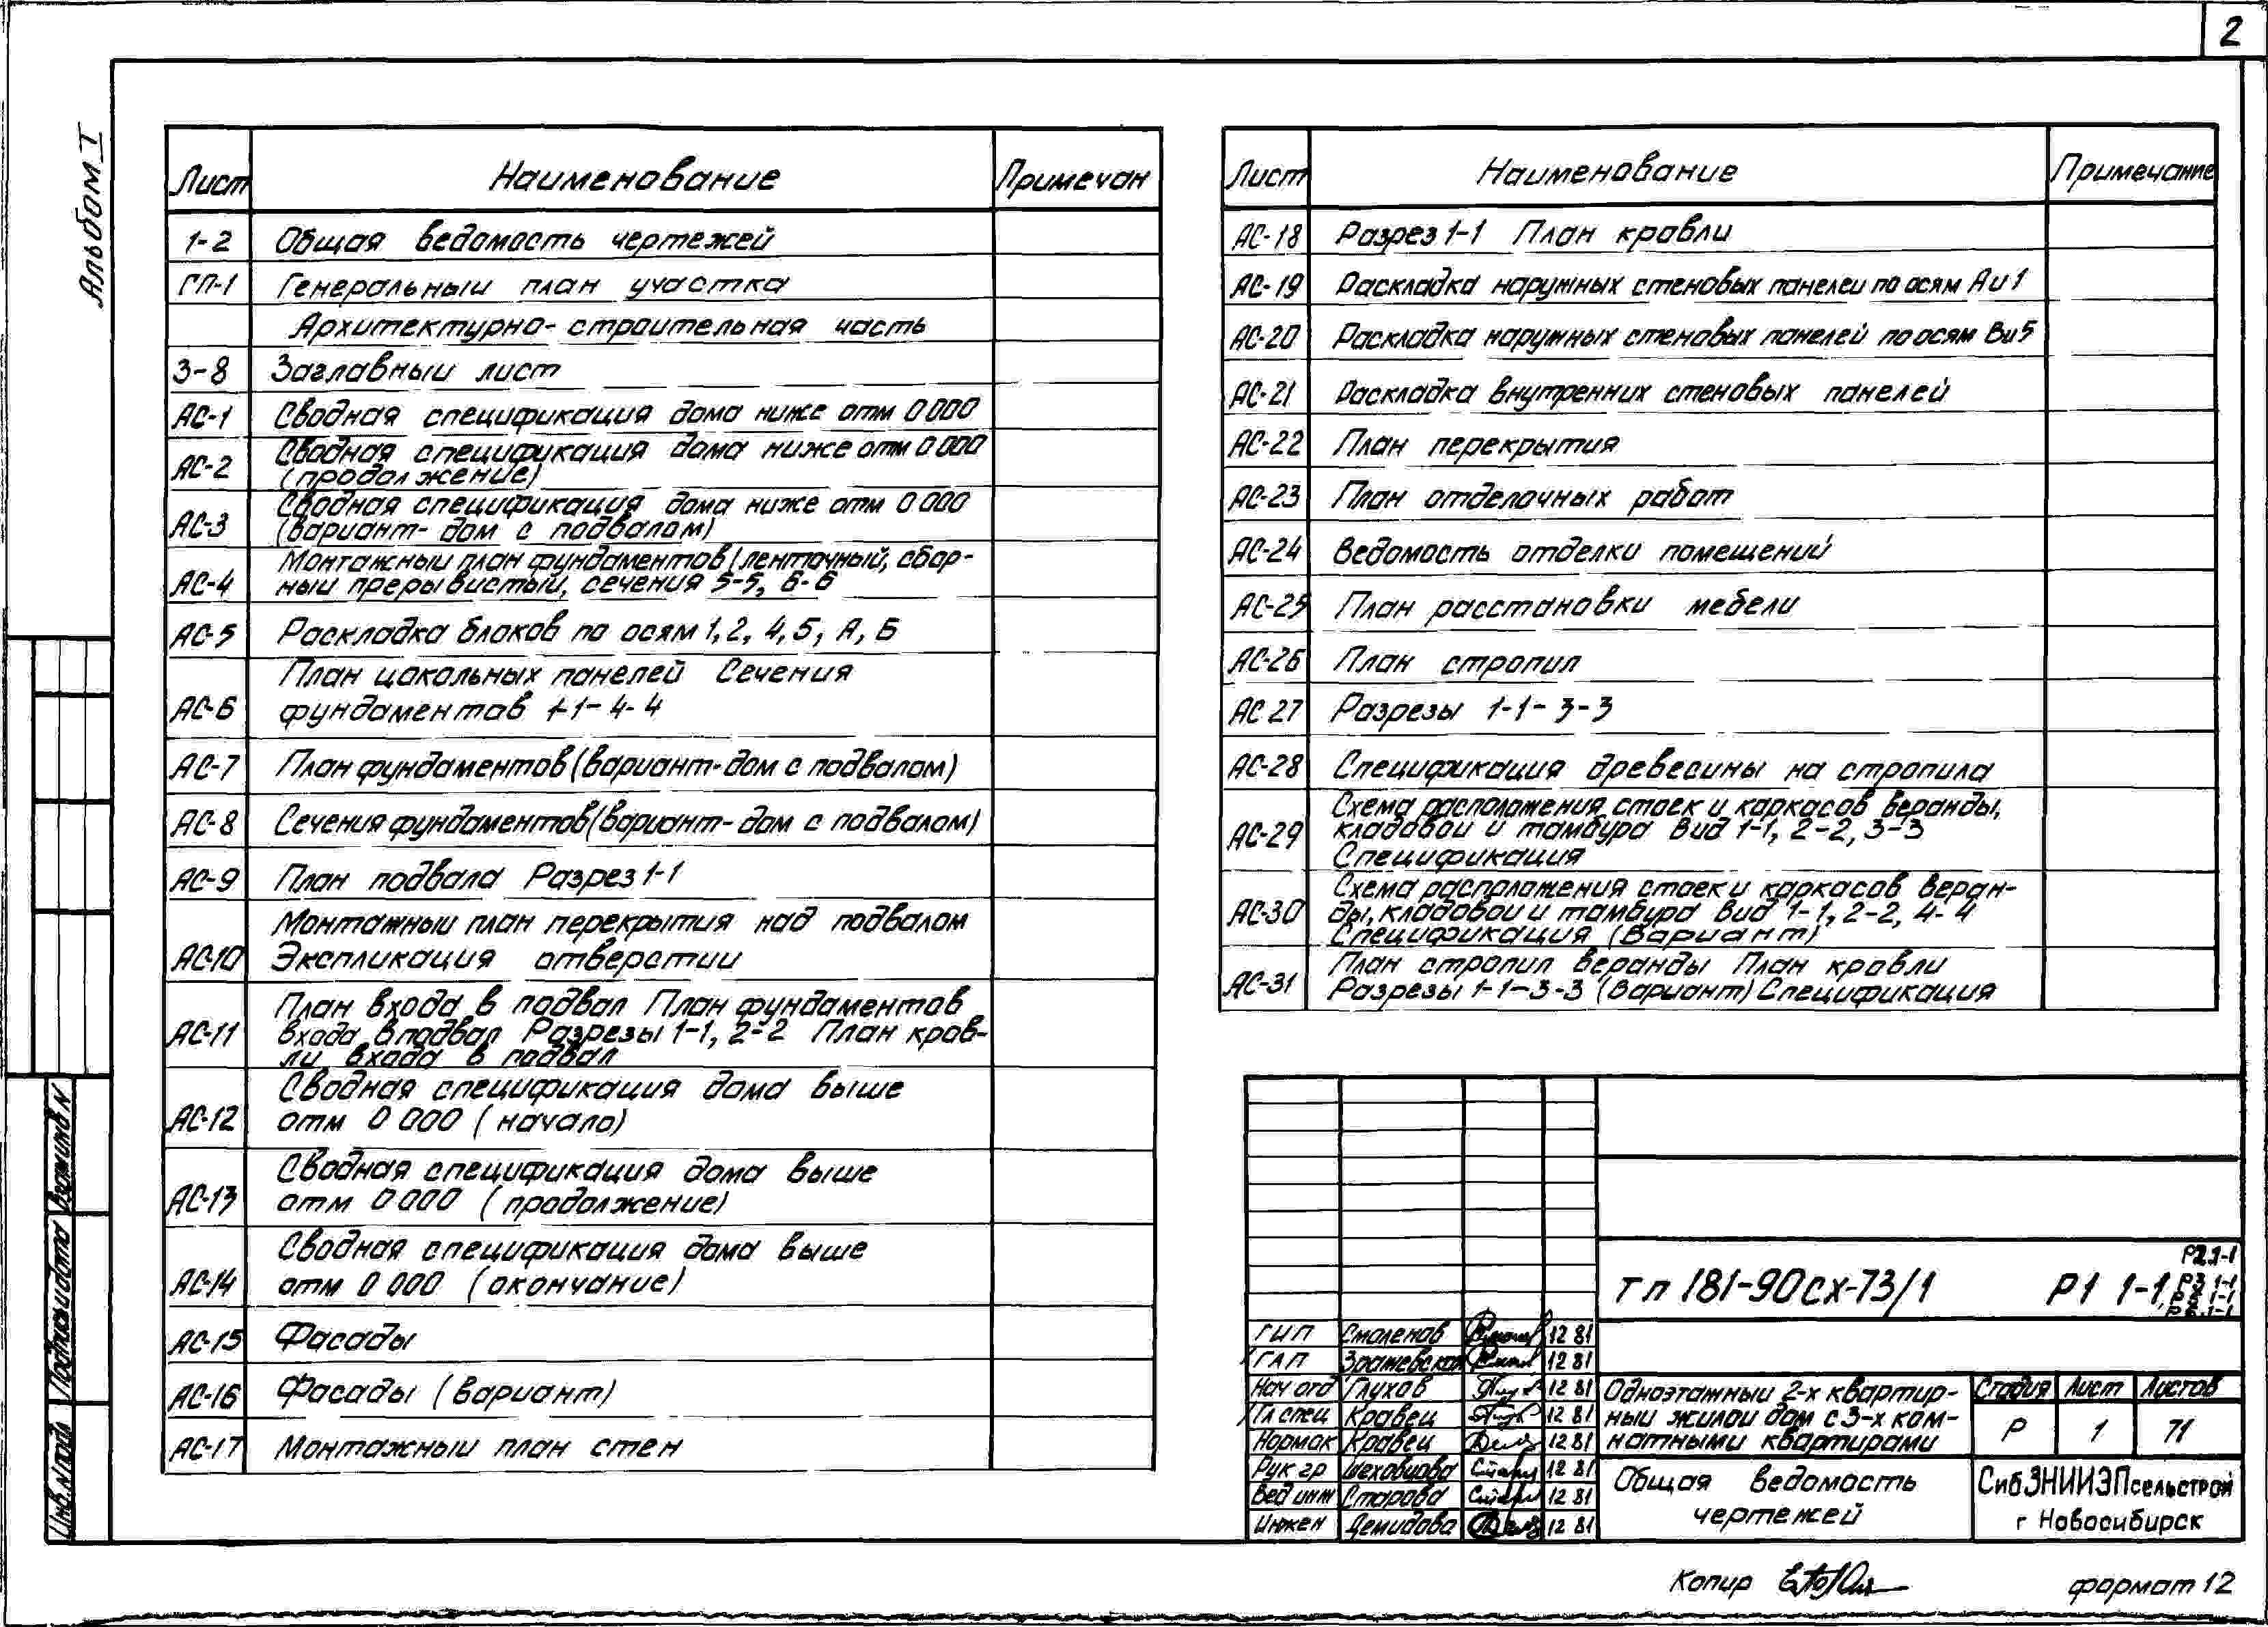 2
Альбом I
Лист Наименование Примечан
1-2 Общая ведомость чертежей
ГП-1 Генеральный план участка
Архитектурно-строительная часть
3-8 Заглавный лист
АС-1 Сводная спецификация дома ниже отм 0 000
АС-2 Сводная спецификация дома ниже отм 0 000
(продолжение)
АС-3 Сводная спецификация дома ниже отм 0 000
(вариант- дом с подвалом)
АС-4 Монтажный план фундаментов (ленточный, сбор-
ный прерывистый, сечения 5-5, 6-6
АС-5 Раскладка блоков по осям 1, 2, 4, 5, А, Б
План цокольных панелей Сечения
АС-6 фундаментов 1-1-4-4
АС-7 План фундаментов (вариант-дом с подвалом)
АС-8 Сечения фундаментов (вариант-дом с подвалом)
АС-9 План подвала Разрез 1-1
Монтажный план перекрытия над подвалом
АС-10 Экспликация отверстий
План входа в подвал План фундаментов
АС-11 входа в подвал Разрезы 1-1, 2-2 План кров-
ли входа в подвал
Сводная спецификация дома выше
АС-12 отм 0 000 (начало)
Сводная спецификация дома выше
АС-13 отм 0 000 (продолжение)
Сводная спецификация дома выше
АС-14 отм 0 000 (окончание)
АС-15 Фасады
АС-16 Фасады (вариант)
АС-17 Монтажный план стен
Лист Наименование Примечание
АС-18 Разрез 1-1 План кровли
АС-19 Раскладка наружных стеновых панелей по осям А и 1
АС-20 Раскладка наружных стеновых панелей по осям В и 5
АС-21 Раскладка внутренних стеновых панелей
АС-22 План перекрытия
АС-23 План отделочных работ
АС-24 Ведомость отделки помещений
АС-25 План расстановки мебели
АС-26 План стропил
АС 27 Разрезы 1-1-3-3
АС-28 Спецификация древесины на стропила
Схема расположения стоек и каркасов веранды,
АС-29 кладовой и тамбура Вид 1-1, 2-2, 3-3
Спецификация
Схема расположения стоек и каркасов веран-
АС-30 ды, кладовой и тамбура Вид 1-1, 2-2, 4-4
Спецификация (Вариант)
План стропил веранды План кровли
АС-31 Разрезы 1-1-3-3 (Вариант) Спецификация
Р2.1-1
тп 181-90сх-73/1 Р1 1-1,
ГИП Смоленов 12 81
ГАП Зражевская 12 81
Нач отд Глухов 12 81
Гл спец Кравец 12 81
Нормок Кравец 12 81
Рук гр Шеховцова 12 81
Вед инж Старова 12 81
Инжен Демидова 12 81
Одноэтажный 2-х квартир-
ный жилой дом с 3-х ком-
натными квартирами
Стадия Лист Листов
Р 1 71
Общая ведомость
чертежей
СибЗНИИЭПсельстрой
г Новосибирск
Взаминв N
Подпись и дата
Инв. N подл
Копир
формат 12